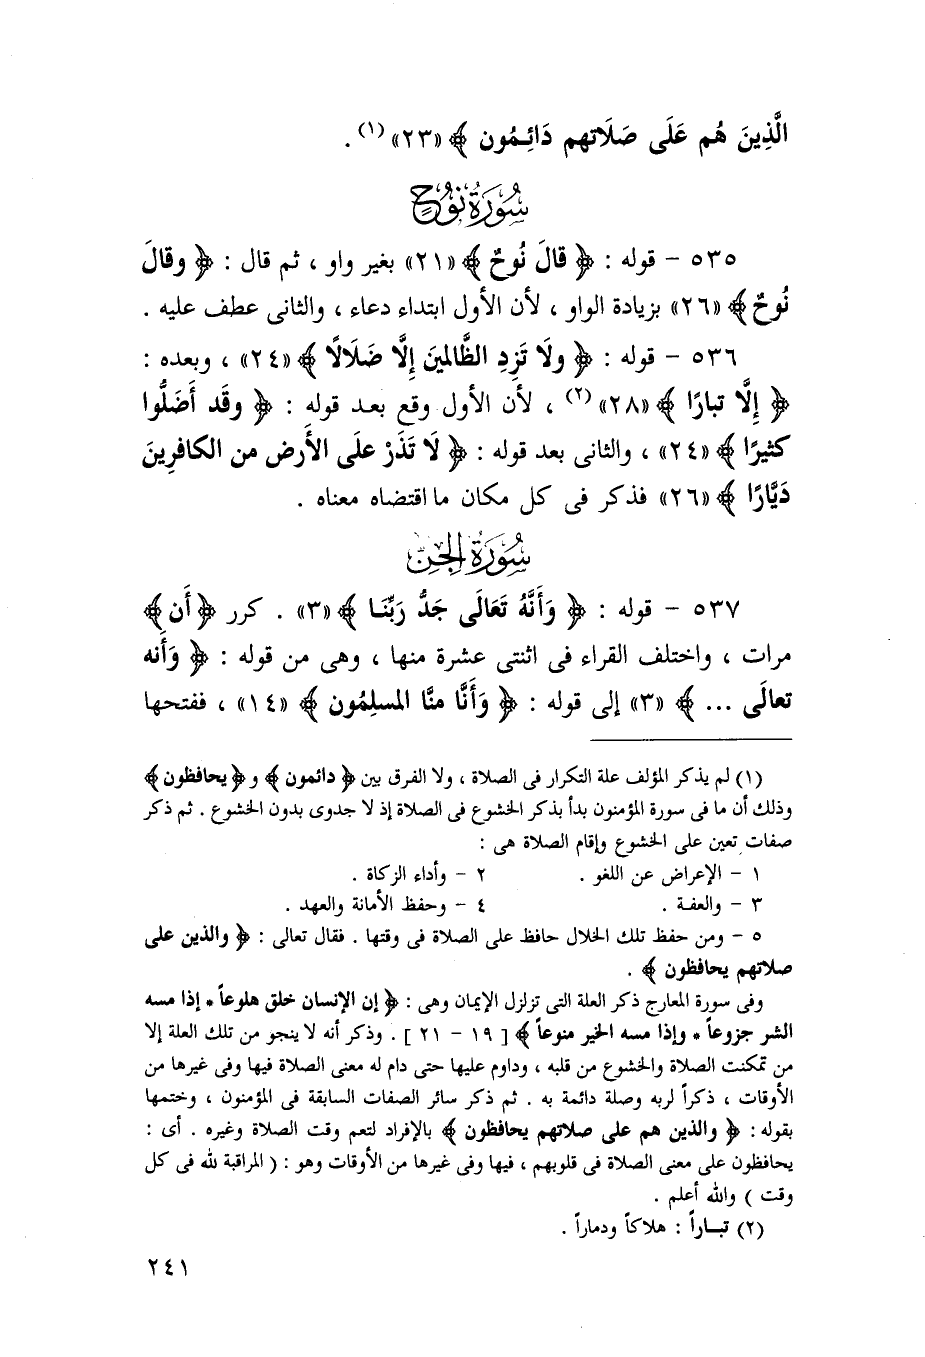 الَّذِينَ هُم عَلَى صَلَاتهم دَائِمُون ﴾ «٢٣» (١) .
سُورَةُ نُوحٍ
٥٣٥ – قوله : ﴿ قالَ نُوحٌ ﴾ «٢١» بغير واو ، ثم قال : ﴿ وقالَ
نُوحٌ ﴾ «٢٦» بزيادة الواو ، لأن الأول ابتداء دعاء ، والثانى عطف عليه .
٥٣٦ – قوله : ﴿ ولَا تَزِدِ الظَّالمينَ إِلَّا ضَلَالًا ﴾ «٢٤» ، وبعده :
﴿ إِلَّا تبارًا ﴾ «٢٨» (٢) ، لأن الأول وقع بعد قوله : ﴿ وقَد أَضَلُّوا
كثيرًا ﴾ «٢٤» ، والثانى بعد قوله : ﴿ لَا تَذَرْ علَى الأَرض من الكافرِينَ
دَيَّارًا ﴾ «٢٦» فذكر فى كل مكان ما اقتضاه معناه .
سُورَةُ الجِنّ
٥٣٧ – قوله : ﴿ وَأَنَّهُ تَعَالَى جَدُّ رَبِّنَا ﴾ «٣» . كرر ﴿ أَن ﴾
مرات ، واختلف القراء فى اثنتى عشرة منها ، وهى من قوله : ﴿ وَأَنه
تعالَى ... ﴾ «٣» إلى قوله : ﴿ وَأَنَّا منَّا المسلِمُون ﴾ «١٤» ، ففتحها
(١) لم يذكر المؤلف علة التكرار فى الصلاة ، ولا الفرق بين ﴿ دائمون ﴾ و ﴿ يحافظون ﴾
وذلك أن ما فى سورة المؤمنون بدأ بذكر الخشوع فى الصلاة إذ لا جدوى بدون الخشوع . ثم ذكر
صفات تعين على الخشوع وإقام الصلاة هى :
١ – الإعراض عن اللغو . ٢ – وأداء الزكاة .
٣ – والعفة . ٤ – وحفظ الأمانة والعهد .
٥ – ومن حفظ تلك الخلال حافظ على الصلاة فى وقتها . فقال تعالى : ﴿ والذين على
صلاتهم يحافظون ﴾ .
وفى سورة المعارج ذكر العلة التى تزلزل الإيمان وهى : ﴿ إن الإنسان خلق هلوعاً * إذا مسه
الشر جزوعاً * وإذا مسه الخير منوعاً ﴾ [ ١٩ – ٢١ ] . وذكر أنه لا ينجو من تلك العلة إلا
من تمكنت الصلاة والخشوع من قلبه ، وداوم عليها حتى دام له معنى الصلاة فيها وفى غيرها من
الأوقات ، ذكراً لربه وصلة دائمة به . ثم ذكر سائر الصفات السابقة فى المؤمنون ، وختمها
بقوله : ﴿ والذين هم على صلاتهم يحافظون ﴾ بالإفراد لتعم وقت الصلاة وغيره . أى :
يحافظون على معنى الصلاة فى قلوبهم ، فيها وفى غيرها من الأوقات وهو : ( المراقبة لله فى كل
وقت ) والله أعلم .
(٢) تبــاراً : هلاكاً ودماراً .
٢٤١